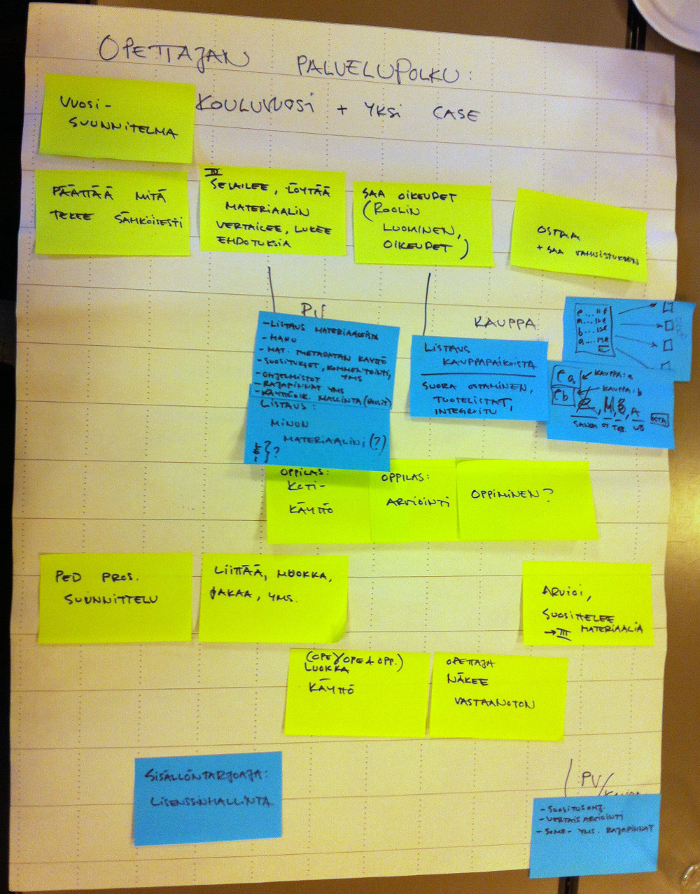 OPETTAJAN PALVELUPOLKU:
KOULUVUOSI + YKSI CASE
VUOSI-
SUUNNITELMA
PÄÄTTÄÄ MITÄ
TEKEE SÄHKÖISESTI
III
SELAILEE, LÖYTÄÄ
MATERIAALIN
VERTAILEE, LUKEE
EHDOTUKSIA
SAA OIKEUDET
(ROOLIN
LUOMINEN,
OIKEUDET)
OSTAA
+ SAA VAHVISTUKSEN
PV
- LISTAUS MATERIAALEISTA
- HAKU
- MAT. METADATAN KÄYTTÖ
- SUOSITUKSET, KOMMENTOINTI,
- OHJELMISTOT YMS
- RAJAPINNAT YMS
- KÄYTTÖOIK. HALLINTA
LISTAUS:
MINUN
MATERIAALINI (?)
?
KAUPPA
LISTAUS
KAUPPAPAIKOISTA
SUORA OSTAMINEN,
TUOTELISTAT,
INTEGROITU
KAUPPA: a
KAUPPA: b
OPPILAS:
KOTI-
KÄYTTÖ
OPPILAS:
ARVIOINTI
OPPIMINEN?
PED PROS.
SUUNNITTELU
LIITTÄÄ, MUOKKA,
JAKAA, YMS.
ARVIOI,
SUOSITTELEE
→ III MATERIAALIA
(OPE/OPE+OPP.)
LUOKKA
KÄYTTÖ
OPETTAJA
NÄKEE
VASTAANOTON
SISÄLLÖNTARJOAJA:
LISENSSINHALLINTA
PV/
- SUOSITUSOHJ.
- VERTAISARVIOINTI
- SOME- YMS. RAJAPINNAT